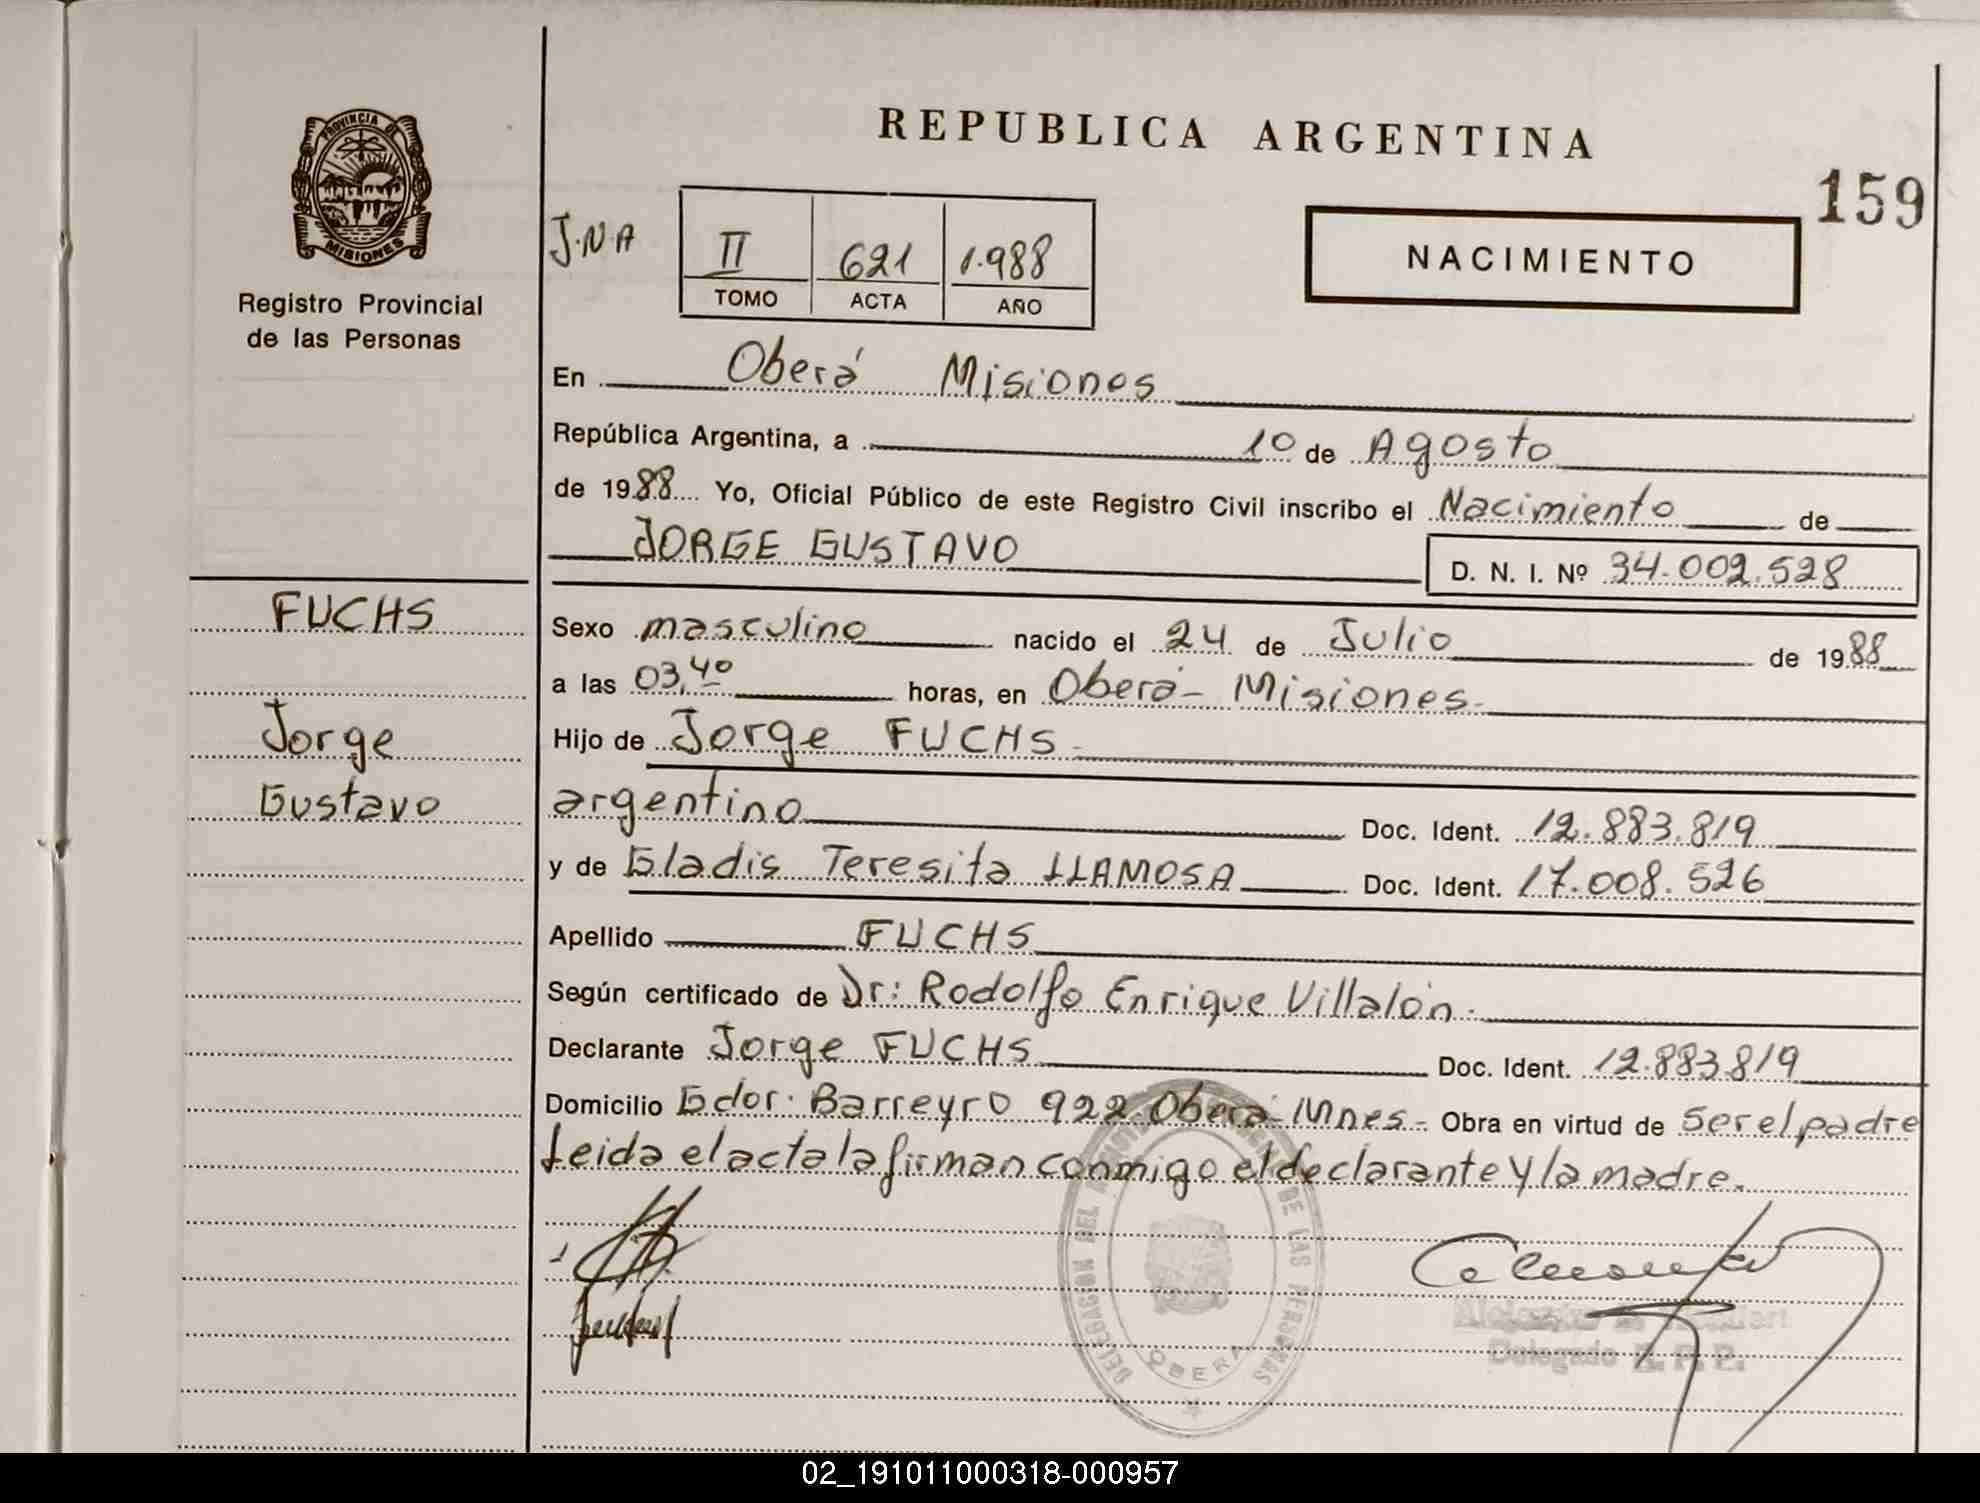 REPUBLICA ARGENTINA
159
PROVINCIA DE
MISIONES
Registro Provincial
de las Personas
J.N.A
II 621 1.988
TOMO ACTA AÑO
NACIMIENTO
En Oberá Misiones
República Argentina, a 10 de Agosto
de 1988 Yo, Oficial Público de este Registro Civil inscribo el Nacimiento de
JORGE GUSTAVO
D. N. I. Nº 34.002.528
FUCHS
Jorge
Gustavo
Sexo masculino nacido el 24 de Julio de 1988
a las 03,40 horas, en Oberá - Misiones.
Hijo de Jorge FUCHS.
argentino Doc. Ident. 12.883.819
y de Gladis Teresita LLAMOSA Doc. Ident. 17.008.526
Apellido FUCHS
Según certificado de Dr: Rodolfo Enrique Villalón.
Declarante Jorge FUCHS Doc. Ident. 12.883.819
Domicilio Gdor. Barreyro 922. Oberá - Mnes. Obra en virtud de ser el padre
Leida el acta la firman conmigo el declarante y la madre.
DELEGACION DEL DE LAS PERSONAS
OBERA
Delegado R. P. P.
02_191011000318-000957